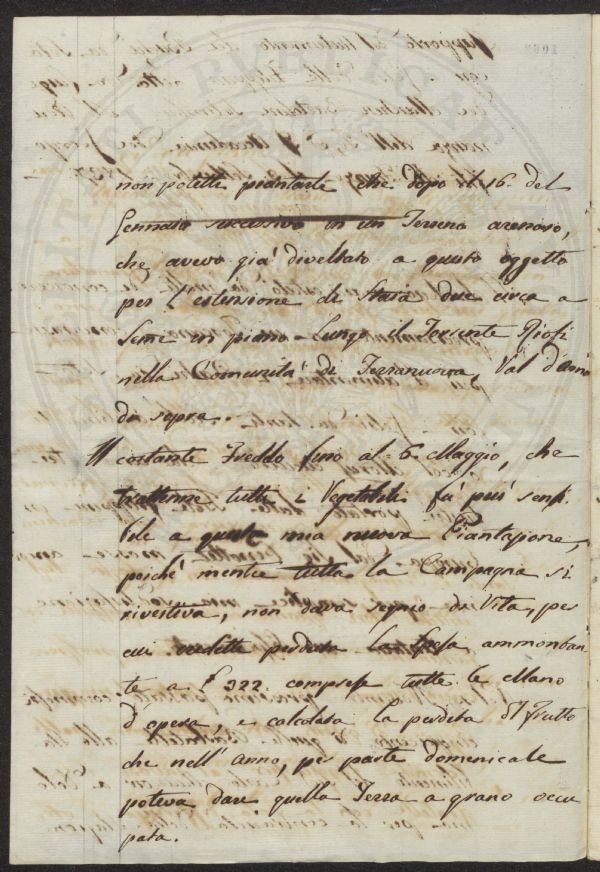 non potette piantarle che dopo il 16. del
Gennaio successivo in un Terreno arenoso,
che avevo già diveltato a questo oggetto
per l'estensione di Staia due circa a
Seme in piano Lungo il Torrente Riofi
nella Comunità di Terranuova, Val d'Arno
di sopra.
Il costante Freddo fino al 6. Maggio, che
trattenne tutti i Vegetabili fù più sensi
bile a questa mia nuova Piantazione,
poiché mentre tutta la Campagna si
rivestiva, non dava segno di Vita, per
cui credetti perduta la spesa ammontan
te a £ 322 comprese tutte le Mano
d'opera, e calcolata la perdita di Frutto
che nell'anno, per parte domenicale
poteva dare quella Terra a grano occu
pata.